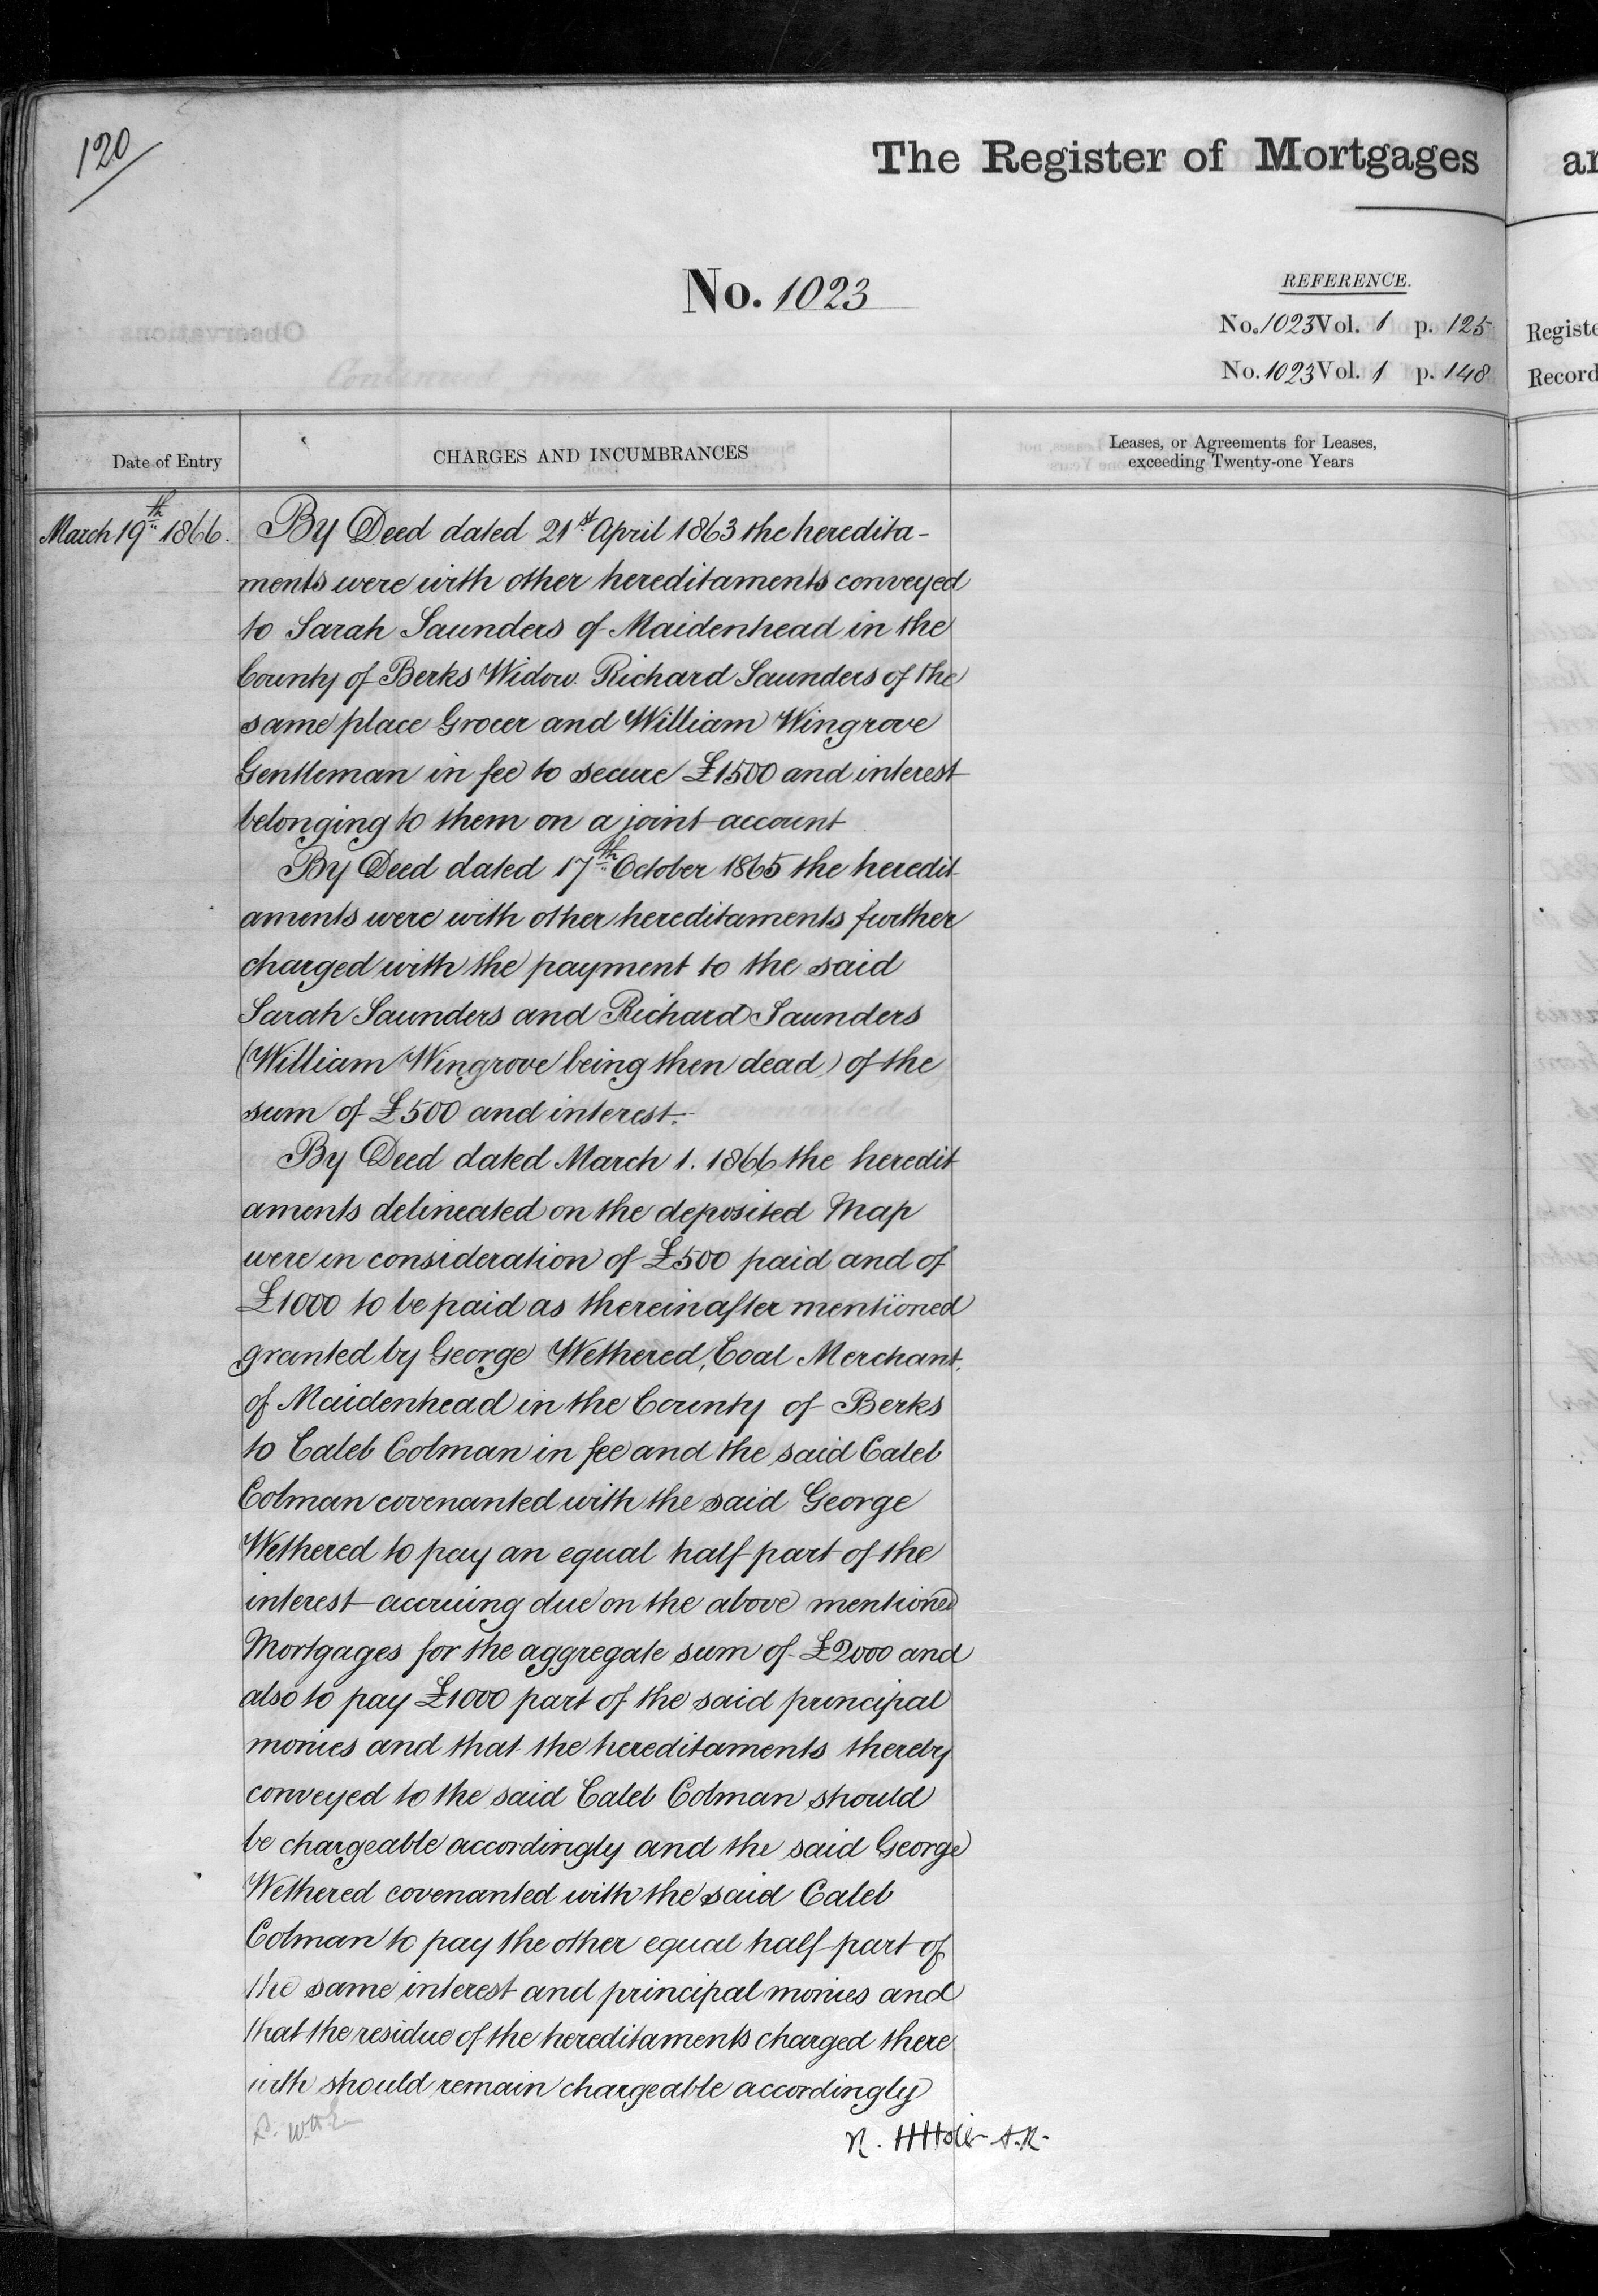 120
The Register of Mortgages
No. 1023
REFERENCE.
No. 1023 Vol. 1 p. 125
No. 1023 Vol. 1 p. 148
Registe
Record
Observations
Date of Entry
CHARGES AND INCUMBRANCES
Leases, or Agreements for Leases,
exceeding Twenty-one Years
March 19th 1866.
By Deed dated 21st April 1863 the heredita-
ments were with other hereditaments conveyed
to Sarah Saunders of Maidenhead in the
County of Berks Widow. Richard Saunders of the
same place Grocer and William Wingrove
Gentleman in fee to secure £1500 and interest
belonging to them on a joint account
By Deed dated 17th October 1865 the heredit
aments were with other hereditaments further
charged with the payment to the said
Sarah Saunders and Richard Saunders
(William Wingrove being then dead) of the
sum of £500 and interest.
By Deed dated March 1. 1866 the heredit
aments delineated on the deposited Map
were in consideration of £500 paid and of
£1000 to be paid as thereinafter mentioned
granted by George Wethered, Coal Merchant,
of Maidenhead in the County of Berks
to Caleb Colman in fee and the said Caleb
Colman covenanted with the said George
Wethered to pay an equal half part of the
interest accruing due on the above mentioned
Mortgages for the aggregate sum of £2000 and
also to pay £1000 part of the said principal
monies and that the hereditaments thereby
conveyed to the said Caleb Colman should
be chargeable accordingly and the said George
Wethered covenanted with the said Caleb
Colman to pay the other equal half part of
the same interest and principal monies and
that the residue of the hereditaments charged there
with should remain chargeable accordingly